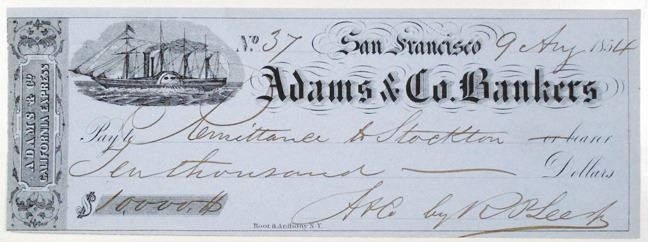 ADAMS & Co
CALIFORNIA EXPRESS
No. 37 San Francisco 9 Aug 1854
Adams & Co. Bankers
Pay to Remittance to Stockton or bearer
Ten thousand Dollars
$ 10000.
A & Co by
Root & Anthony N.Y.